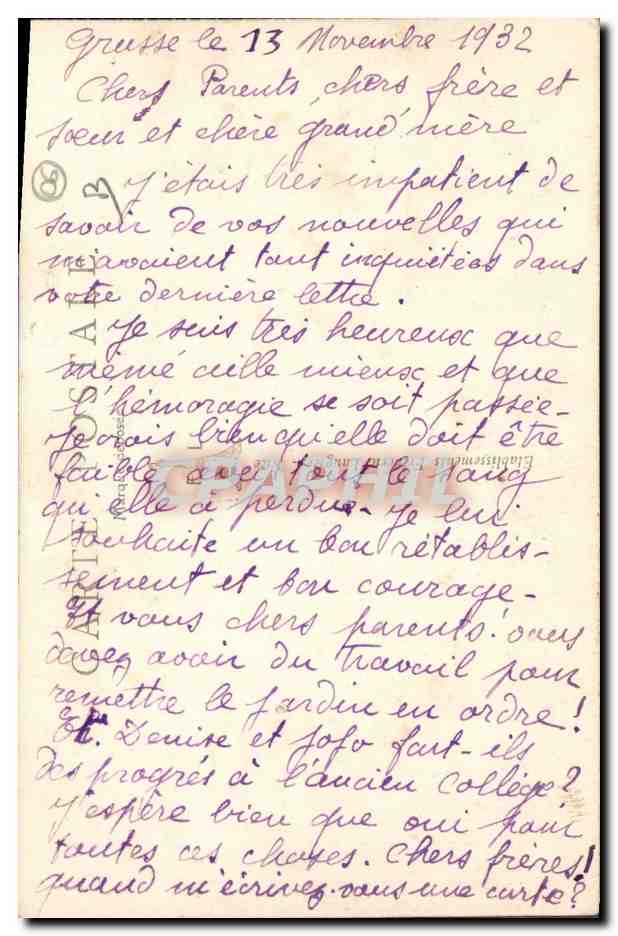 Grasse le 13 Novembre 1932
Chers Parents, chers frère et
sœur et chère grand'mère
J'étais très impatient de
savoir de vos nouvelles qui
m'avaient tant inquiétées dans
votre dernière lettre.
Je suis très heureux que
mémé aille mieux et que
l'hémoragie se soit passée -
Je crois bien qu'elle doit être
faible avec tout le sang
qu'elle a perdue - Je lui
souhaite un bon rétablis-
sement et bon courage -
Et vous chers parents! vous
devez avoir du travail pour
remettre le jardin en ordre!
Et. Denise et Jojo font-ils
des progrés à l'ancien collège?
J'espère bien que oui pour
toutes ces choses. Chers frères!
quand m'écrivez-vous une carte?
CARTE POSTALE
Marque déposée
Etablissements
CPAPHIL